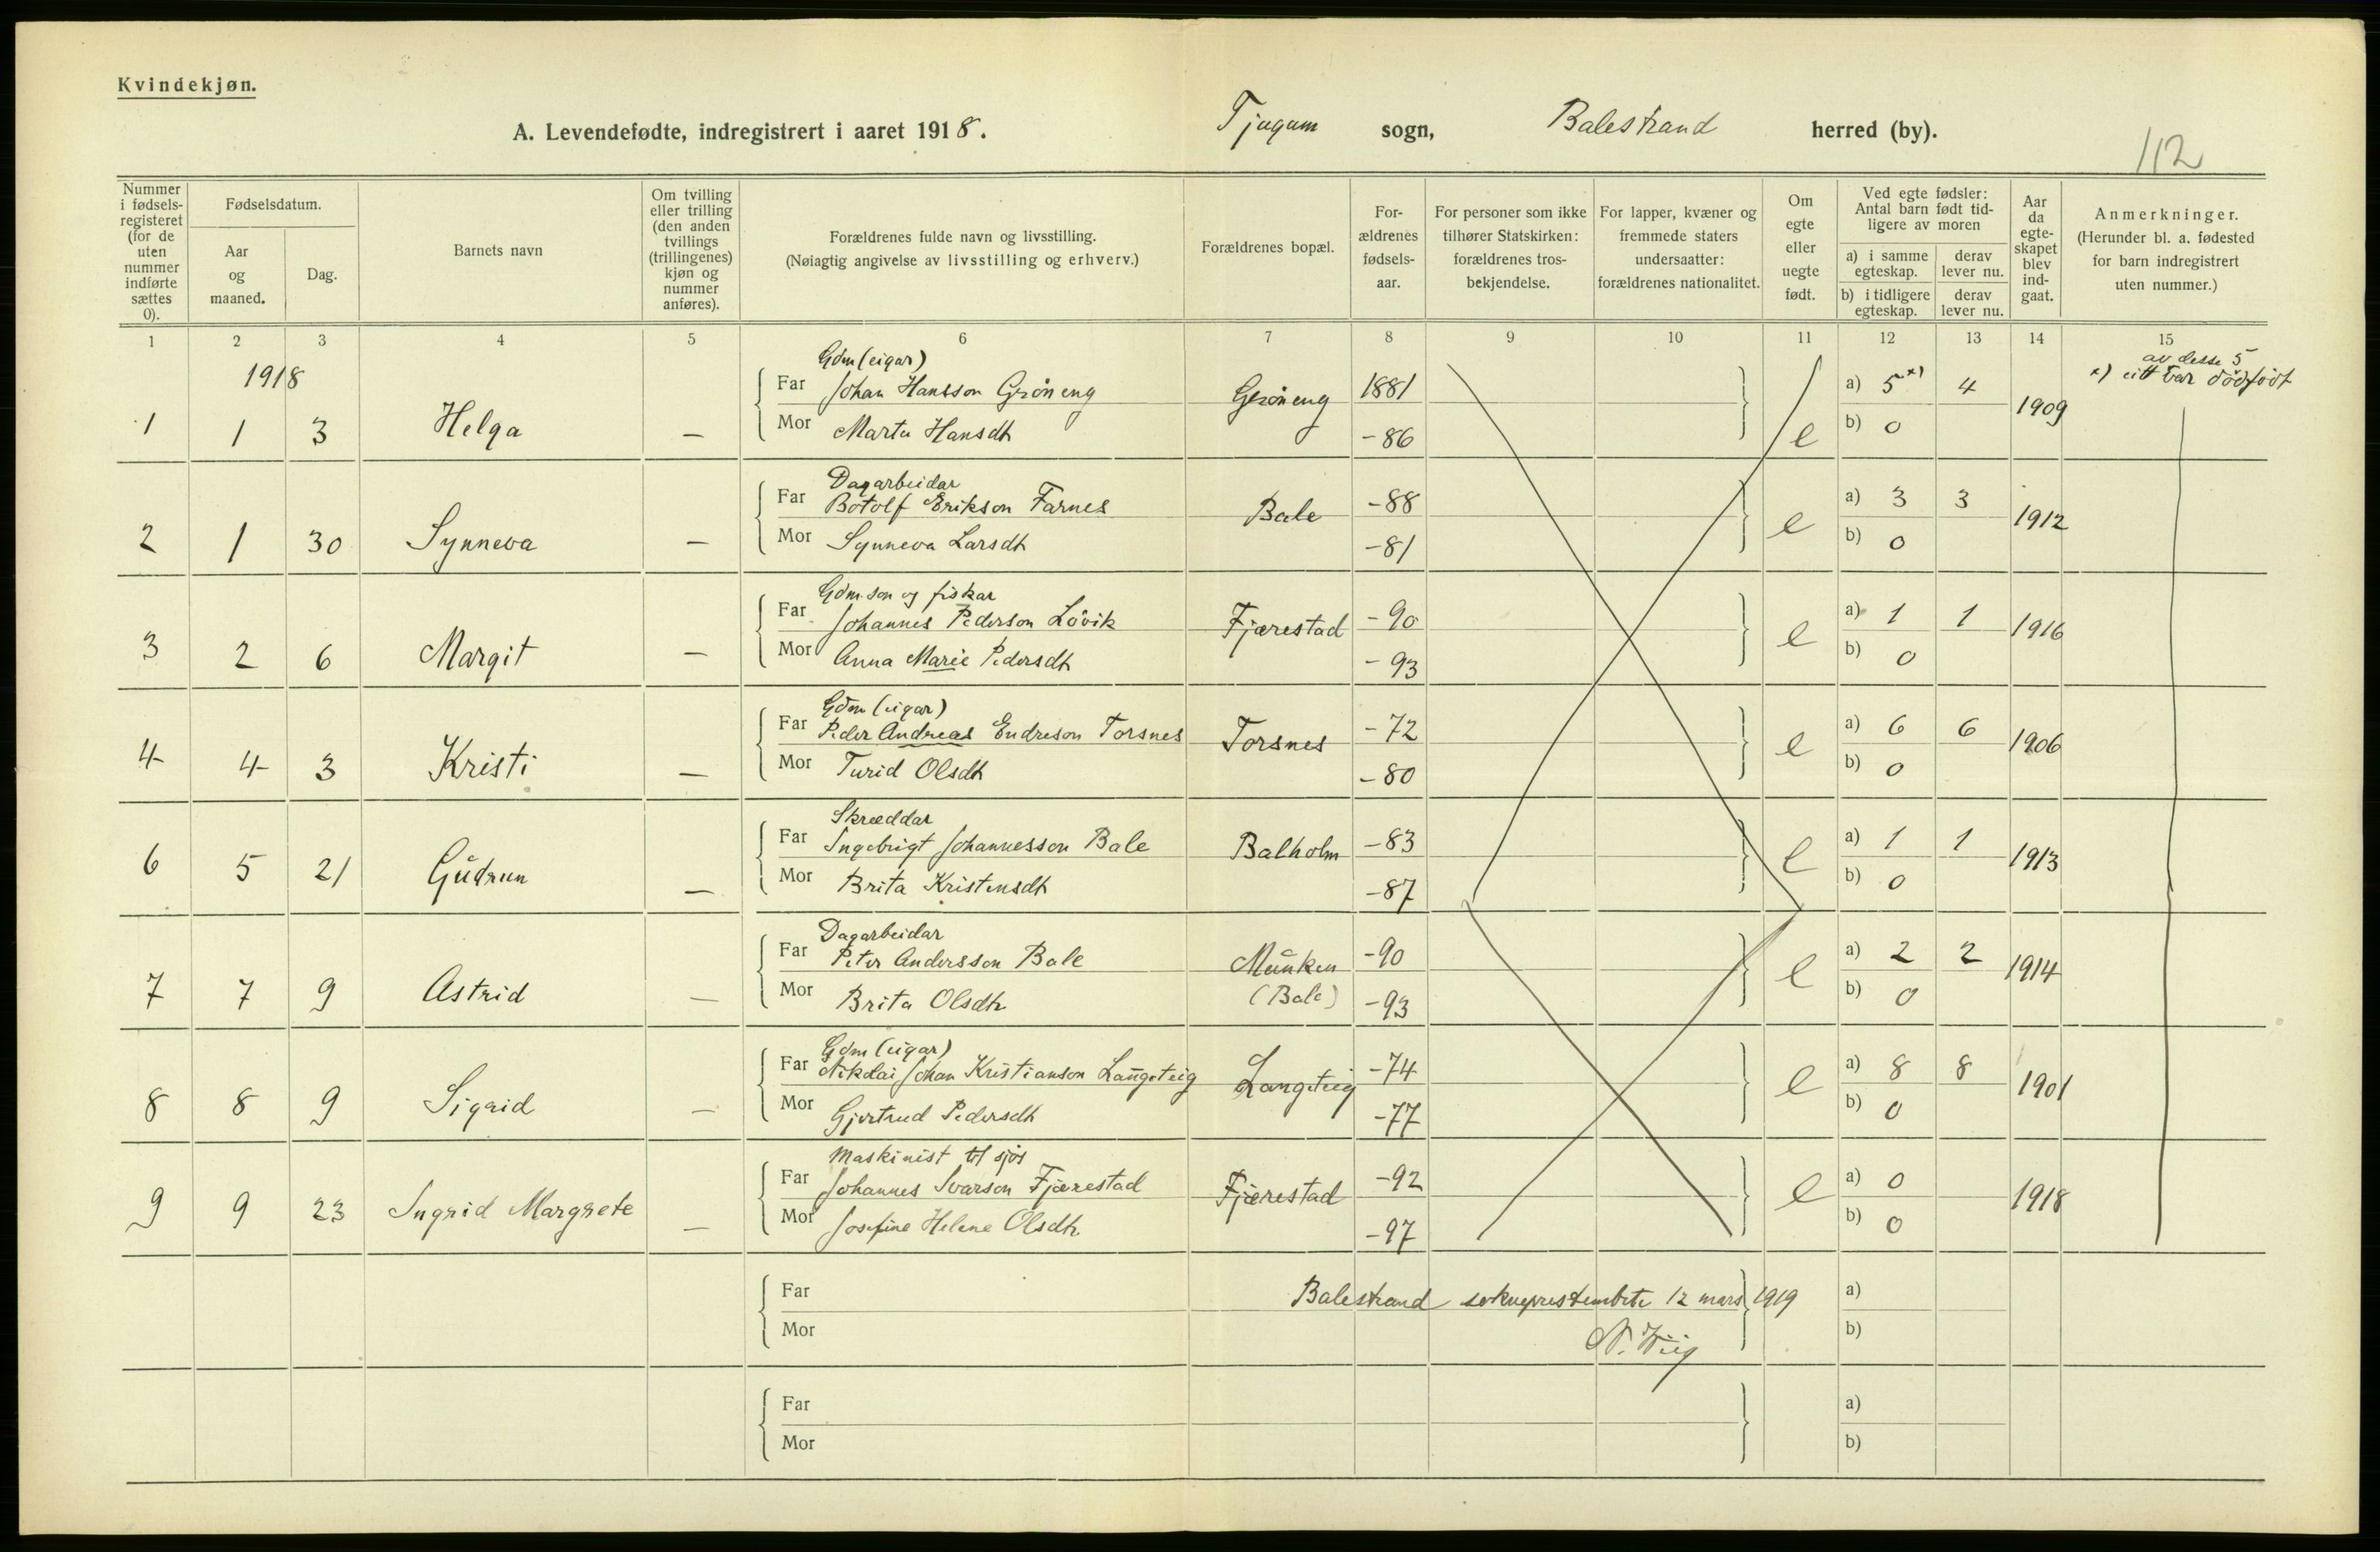 Kvindekjøn.
A. Levendefødte, indregistrert i aaret 1918. Tjugum sogn, Balestrand herred (by).
112
Nummer i fødsels-registeret (for de uten nummer indførte sættes 0).
Fødselsdatum.
Aar og maaned.
Dag.
Barnets navn
Om tvilling eller trilling (den anden tvillings (trillingenes) kjøn og nummer anføres).
Forældrenes fulde navn og livsstilling.
(Nøiagtig angivelse av livsstilling og erhverv.)
Forældrenes bopæl.
For-ældrenes fødsels-aar.
For personer som ikke tilhører Statskirken: forældrenes tros-bekjendelse.
For lapper, kvæner og fremmede staters undersaatter: forældrenes nationalitet.
Om egte eller uegte født.
Ved egte fødsler: Antal barn født tid-ligere av moren
a) i samme egteskap.
derav lever nu.
b) i tidligere egteskap.
derav lever nu.
Aar da egte-skapet blev ind-gaat.
Anmerkninger.
(Herunder bl. a. fødested for barn indregistrert uten nummer.)
1 2 3 4 5 6 7 8 9 10 11 12 13 14 15
1918
Gdm (eigar)
Far Johan Hansson Grøneng Grøneng 1881 a) 5 x) 4 1909
av desse 5
x) eitt var dødfødt
1 1 3 Helga — Mor Marta Hansdtr -86 e b) 0
Dagarbeidar
Far Botolf Erikson Farnes Bale -88 a) 3 3 1912
2 1 30 Synneva — Mor Synneva Larsdtr -81 e b) 0
Gdm.son og fiskar
Far Johannes Pederson Løvik Fjærestad -90 a) 1 1 1916
3 2 6 Margit — Mor Anna Marie Pedersdtr -93 e b) 0
Gdm (eigar)
Far Peder Andreas Endreson Torsnes Torsnes -72 a) 6 6 1906
4 4 3 Kristi — Mor Turid Olsdtr -80 e b) 0
Skræddar
Far Ingebrigt Johannesson Bale Balholm -83 a) 1 1 1913
6 5 21 Gudrun — Mor Brita Kristensdtr -87 e b) 0
Dagarbeidar
Far Peter Andersson Bale Munken (Bale) -90 a) 2 2 1914
7 7 9 Astrid — Mor Brita Olsdtr -93 e b) 0
Gdm (eigar)
Far Nikolai Johan Kristianson Langeteig Langeteig -74 a) 8 8 1901
8 8 9 Sigrid — Mor Gjertrud Pedersdtr -77 e b) 0
Maskinist til sjøs
Far Johannes Ivarson Fjærestad Fjærestad -92 a) 0 1918
9 9 23 Ingrid Margrete — Mor Josefine Helene Olsdtr -97 e b) 0
Far Balestrand sokneprestembete 12 mars 1919 a)
Mor b)
Far a)
Mor b)